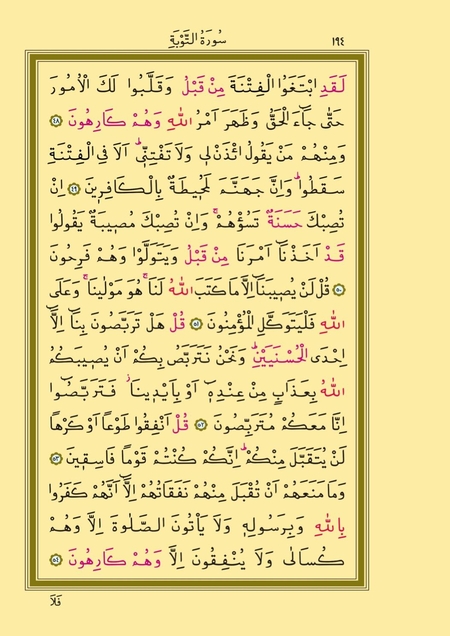 ١٩٤ سُورَةُ التَّوْبَةِ
لَقَدِ ابْتَغَوُا الْفِتْنَةَ مِنْ قَبْلُ وَقَلَّبُوا لَكَ الْاُمُورَ
حَتّٰى جَٓاءَ الْحَقُّ وَظَهَرَ اَمْرُ اللّٰهِ وَهُمْ كَارِهُونَ ﴿٤٨﴾
وَمِنْهُمْ مَنْ يَقُولُ ائْذَنْ ل۪ى وَلَا تَفْتِنّ۪ىۜ اَلَا فِى الْفِتْنَةِ
سَقَطُواۜ وَاِنَّ جَهَنَّمَ لَمُح۪يطَةٌ بِالْكَافِر۪ينَ ﴿٤٩﴾ اِنْ
تُصِبْكَ حَسَنَةٌ تَسُؤْهُمْۚ وَاِنْ تُصِبْكَ مُص۪يبَةٌ يَقُولُوا
قَدْ اَخَذْنَٓا اَمْرَنَا مِنْ قَبْلُ وَيَتَوَلَّوْا وَهُمْ فَرِحُونَ
﴿٥٠﴾ قُلْ لَنْ يُص۪يبَنَٓا اِلَّا مَا كَتَبَ اللّٰهُ لَنَاۚ هُوَ مَوْلٰينَاۚ وَعَلَى
اللّٰهِ فَلْيَتَوَكَّلِ الْمُؤْمِنُونَ ﴿٥١﴾ قُلْ هَلْ تَرَبَّصُونَ بِنَٓا اِلَّٓا
اِحْدَى الْحُسْنَيَيْنِۜ وَنَحْنُ نَتَرَبَّصُ بِكُمْ اَنْ يُص۪يبَكُمُ
اللّٰهُ بِعَذَابٍ مِنْ عِنْدِه۪ٓ اَوْ بِاَيْد۪ينَاۘ فَتَرَبَّصُٓوا
اِنَّا مَعَكُمْ مُتَرَبِّصُونَ ﴿٥٢﴾ قُلْ اَنْفِقُوا طَوْعًا اَوْ كَرْهًا
لَنْ يُتَقَبَّلَ مِنْكُمْۜ اِنَّكُمْ كُنْتُمْ قَوْمًا فَاسِق۪ينَ ﴿٥٣﴾
وَمَا مَنَعَهُمْ اَنْ تُقْبَلَ مِنْهُمْ نَفَقَاتُهُمْ اِلَّٓا اَنَّهُمْ كَفَرُوا
بِاللّٰهِ وَبِرَسُولِه۪ وَلَا يَأْتُونَ الصَّلٰوةَ اِلَّا وَهُمْ
كُسَالٰى وَلَا يُنْفِقُونَ اِلَّا وَهُمْ كَارِهُونَ ﴿٥٤﴾
فَلَا